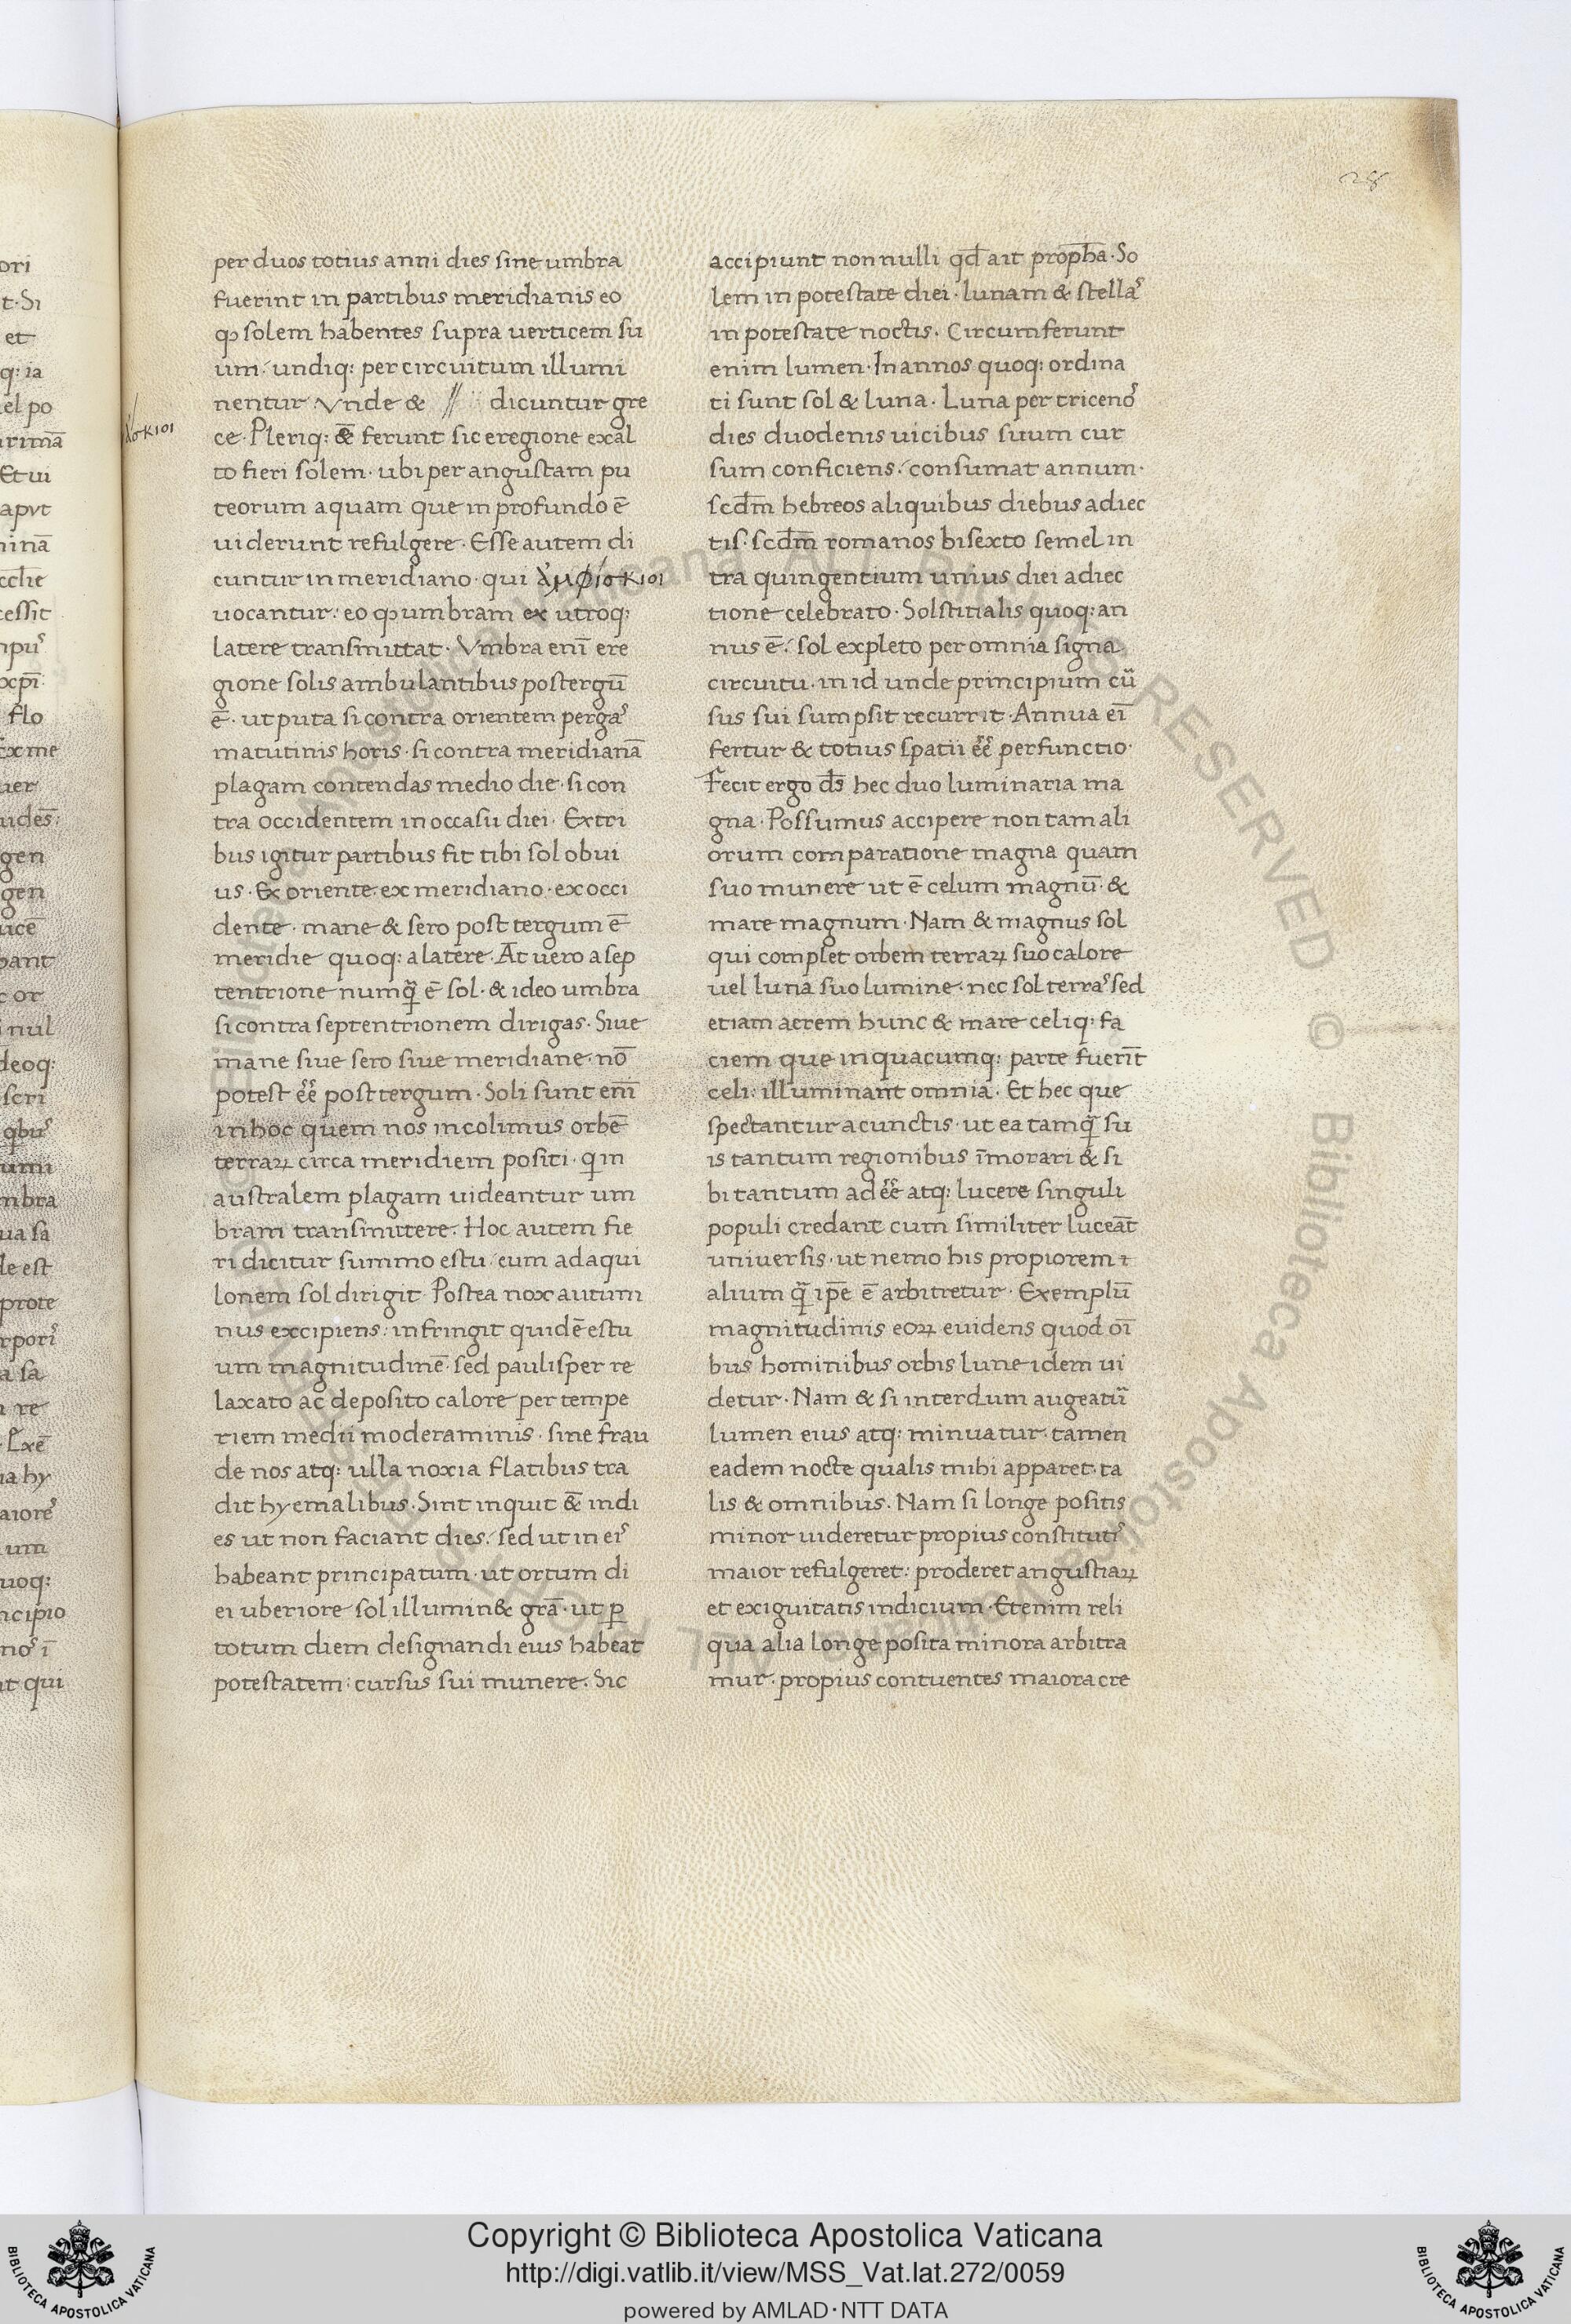 28
per duos totius anni dies sine umbra
fuerint in partibus meridianis eo
ꝙ solem habentes supra uerticem su
um: undiq: per circuitum illumi
nentur Vnde & // dicuntur gre
ce. Pleriq: &̄ ferunt sic e regione ex al
to fieri solem. ubi per angustam pu
teorum aquam que in profundo ē
uiderunt refulgere. Esse autem di
cuntur in meridiano. qui ἀμφίσκιοι
uocantur: eo ꝙ umbram ex utroq:
latere transmittat. Vmbra eni̅ ere
gione solis ambulantibus postergu̅
ē. ut puta si contra orientem pergaˢ
matutinis horis. si contra meridianā
plagam contendas medio die. si con
tra occidentem in occasu diei. Ex tri
bus igitur partibus fit tibi sol obui
us. Ex oriente. ex meridiano. ex occi
dente. mane & sero post tergum ē
meridie quoq: a latere. At uero a sep
tentrione numq̄ ē sol. & ideo umbra
si contra septentrionem dirigas. Siue
mane siue sero siue meridiane. nō
potest ēē post tergum. Soli sunt eni̅
in hoc quem nos incolimus orbē
terraꝝ circa meridiem positi. q̄ in
australem plagam uideantur um
bram transmittere. Hoc autem fie
ri dicitur summo estu: cum ad aqui
lonem sol dirigit. Postea nox autum
nus excipiens: infringit quidē estu
um magnitudinē. sed paulisper re
laxato ac deposito calore per tempe
riem medii moderaminis. sine frau
de nos atq: ulla noxia flatibus tra
dit hyemalibus. Sint inquit &̄ indi
es ut non faciant dies: sed ut in eiˢ
habeant principatum. ut ortum di
ei uberiore sol illumin& grā. ut ꝑ
totum diem designandi eius habeat
potestatem: cursus sui munere. Sic
accipiunt non nulli qd̄ ait proph̄a. So
lem in potestate diei. lunam & stellaˢ
in potestate noctis. Circumferunt
enim lumen. In annos quoq: ordina
ti sunt sol & luna. Luna per tricenoˢ
dies duodenis uicibus suum cur
sum conficiens: consumat annum.
scd̄m hebreos aliquibus diebus adiec
tis. scd̄m romanos bisexto semel in
tra quingentium unius diei adiec
tione celebrato. Solstitialis quoq: an
nus ē: sol expleto per omnia signa
circuitu. in id unde principium cu̅
sus sui sumpsit recurrit. Annua ei̅
fertur & totius spatii ēē perfunctio.
Fecit ergo d̄s hec duo luminaria ma
gna. Possumus accipere non tam ali
orum comparatione magna quam
suo munere ut ē celum magnu̅. &
mare magnum. Nam & magnus sol
qui complet orbem terraꝝ suo calore
uel luna suo lumine. nec sol terraˢ sed
etiam aerem hunc & mare celiq: fa
ciem que in quacumq: parte fueri̅t
celi: illuminant omnia. Et hec que
spectantur a cunctis. ut ea tamq̄ su
is tantum regionibus i̅morari & si
bi tantum adēē atq: lucere singuli
populi credant. cum similiter luceāt
uniuersis. ut nemo his propiorem ⁊
alium q̄ ip̄e ē arbitretur. Exemplu̅
magnitudinis eoꝝ euidens quod oi̅
bus hominibus orbis lune idem ui
detur. Nam & si interdum augeatu̅
lumen eius atq: minuatur. tamen
eadem nocte qualis mihi apparet. ta
lis & omnibus. Nam si longe positis
minor uideretur propius constitutiˢ
maior refulgeret: proderet angustiaꝝ
et exiguitatis indicium. Etenim reli
qua alia longe posita minora arbitra
mur. propius contuentes maiora cre
Copyright © Biblioteca Apostolica Vaticana
http://digi.vatlib.it/view/MSS_Vat.lat.272/0059
powered by AMLAD·NTT DATA
BIBLIOTECA APOSTOLICA VATICANA
BIBLIOTECA APOSTOLICA VATICANA